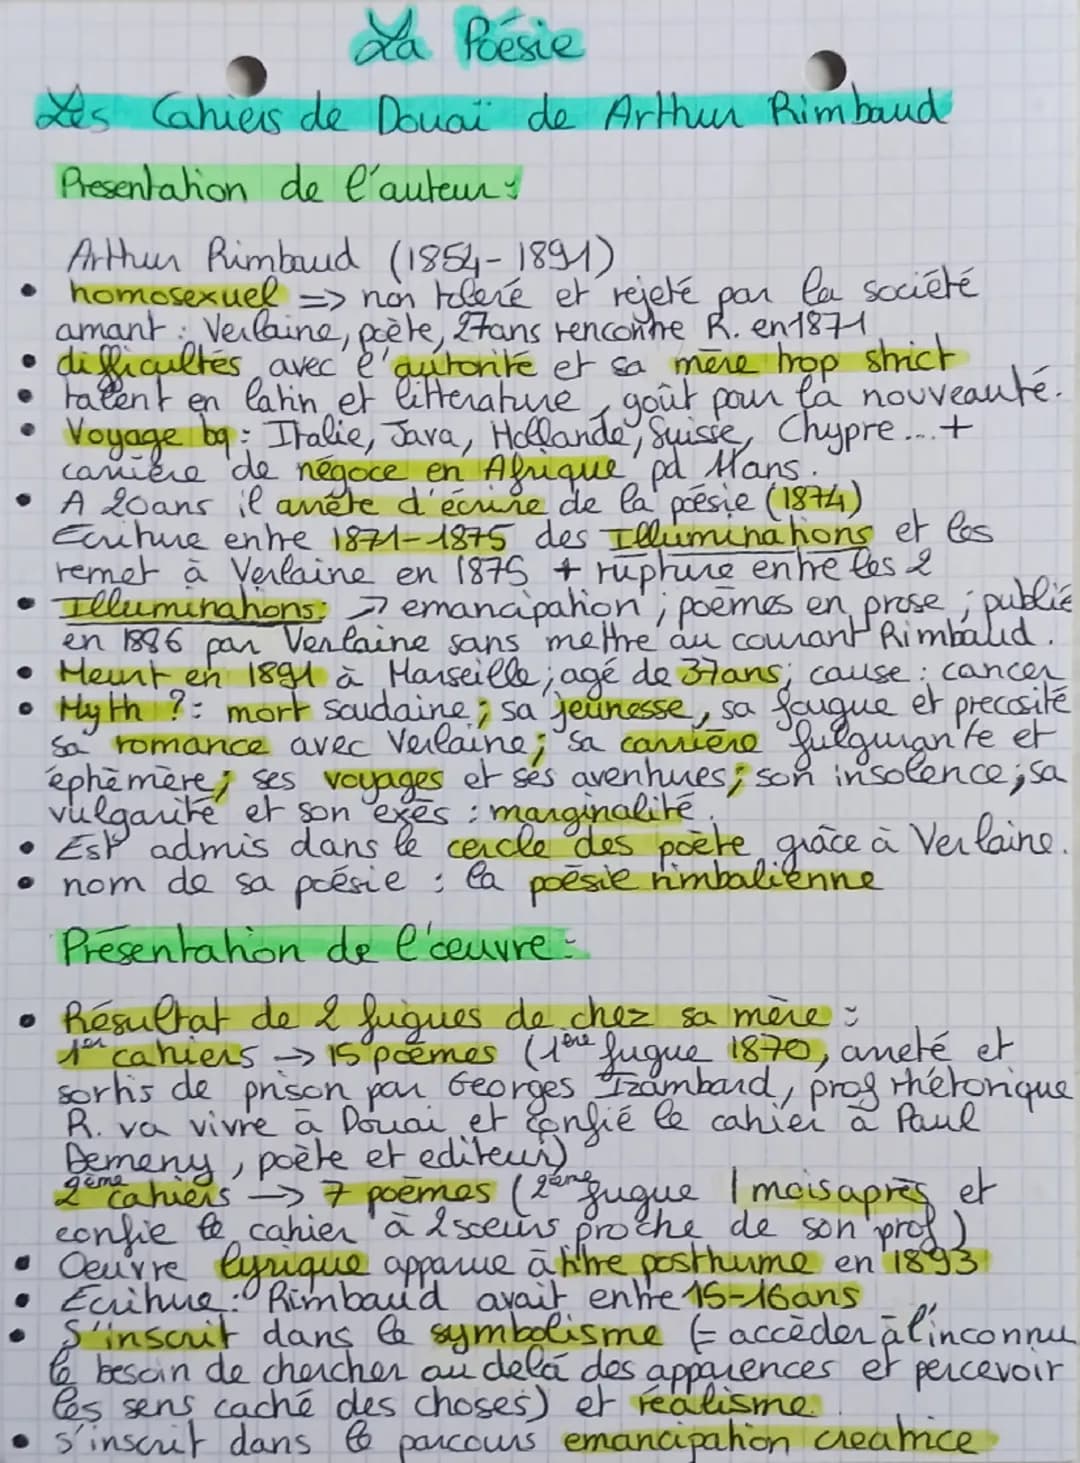 La Poésie
Les Cahiers de Douaï de Arthur Rimbaud
Presentation de l'auteur :
Arthur Rimbaud (1854-1891)
• homosexuel => non toleré et rejeté par la société
amant : Verlaine, poète, 27ans rencontre R. en 1871
• difficultés avec l'autorité et sa mère trop strict
• talent en latin et litterature, goût pour la nouveauté.
• Voyage bq : Italie, Java, Hollande, Suisse, Chypre...+
carrière de négoce en Afrique pd 11ans.
• A 20ans il arrête d'écrire de la poésie (1874)
Ecriture entre 1871-1875 des Illuminations et les
remet à Verlaine en 1875 + rupture entre les 2
• Illuminations: => emancipation ; poèmes en prose ; publié
en 1886 par Verlaine sans mettre au courant Rimbaud.
• Meurt en 1891 à Marseille ; agé de 37ans ; cause : cancer
• Myth ? : mort soudaine ; sa jeunesse, sa fougue et precosité
sa romance avec Verlaine ; sa carrière fulgurante et
éphèmère ; ses voyages et ses aventures ; son insolence ; sa
vulgarité et son exès : marginalité.
• Est admis dans le cercle des poète grâce à Verlaine.
• nom de sa poésie : la poésie rimbalienne
Présentation de l'œuvre :
• Résultat de 2 fugues de chez sa mère :
1er cahiers -> 15 poèmes (1ère fugue 1870, arreté et
sortis de prison par Georges Izambard, prof rhétorique
R. va vivre à Douai et confié le cahier à Paul
Demeny, poète et editeur)
2ème cahiers -> 7 poèmes (2ème fugue 1 mois après et
confie le cahier à 2 sœurs proche de son prof)
• Oeuvre lyrique apparue à titre posthume en 1893
• Ecriture : Rimbaud avait entre 15-16ans
• S'inscrit dans le symbolisme (= accèder à l'inconnu
le besoin de chercher au delà des apparences et percevoir
les sens caché des choses) et réalisme.
• s'inscrit dans le parcours emancipation creatrice